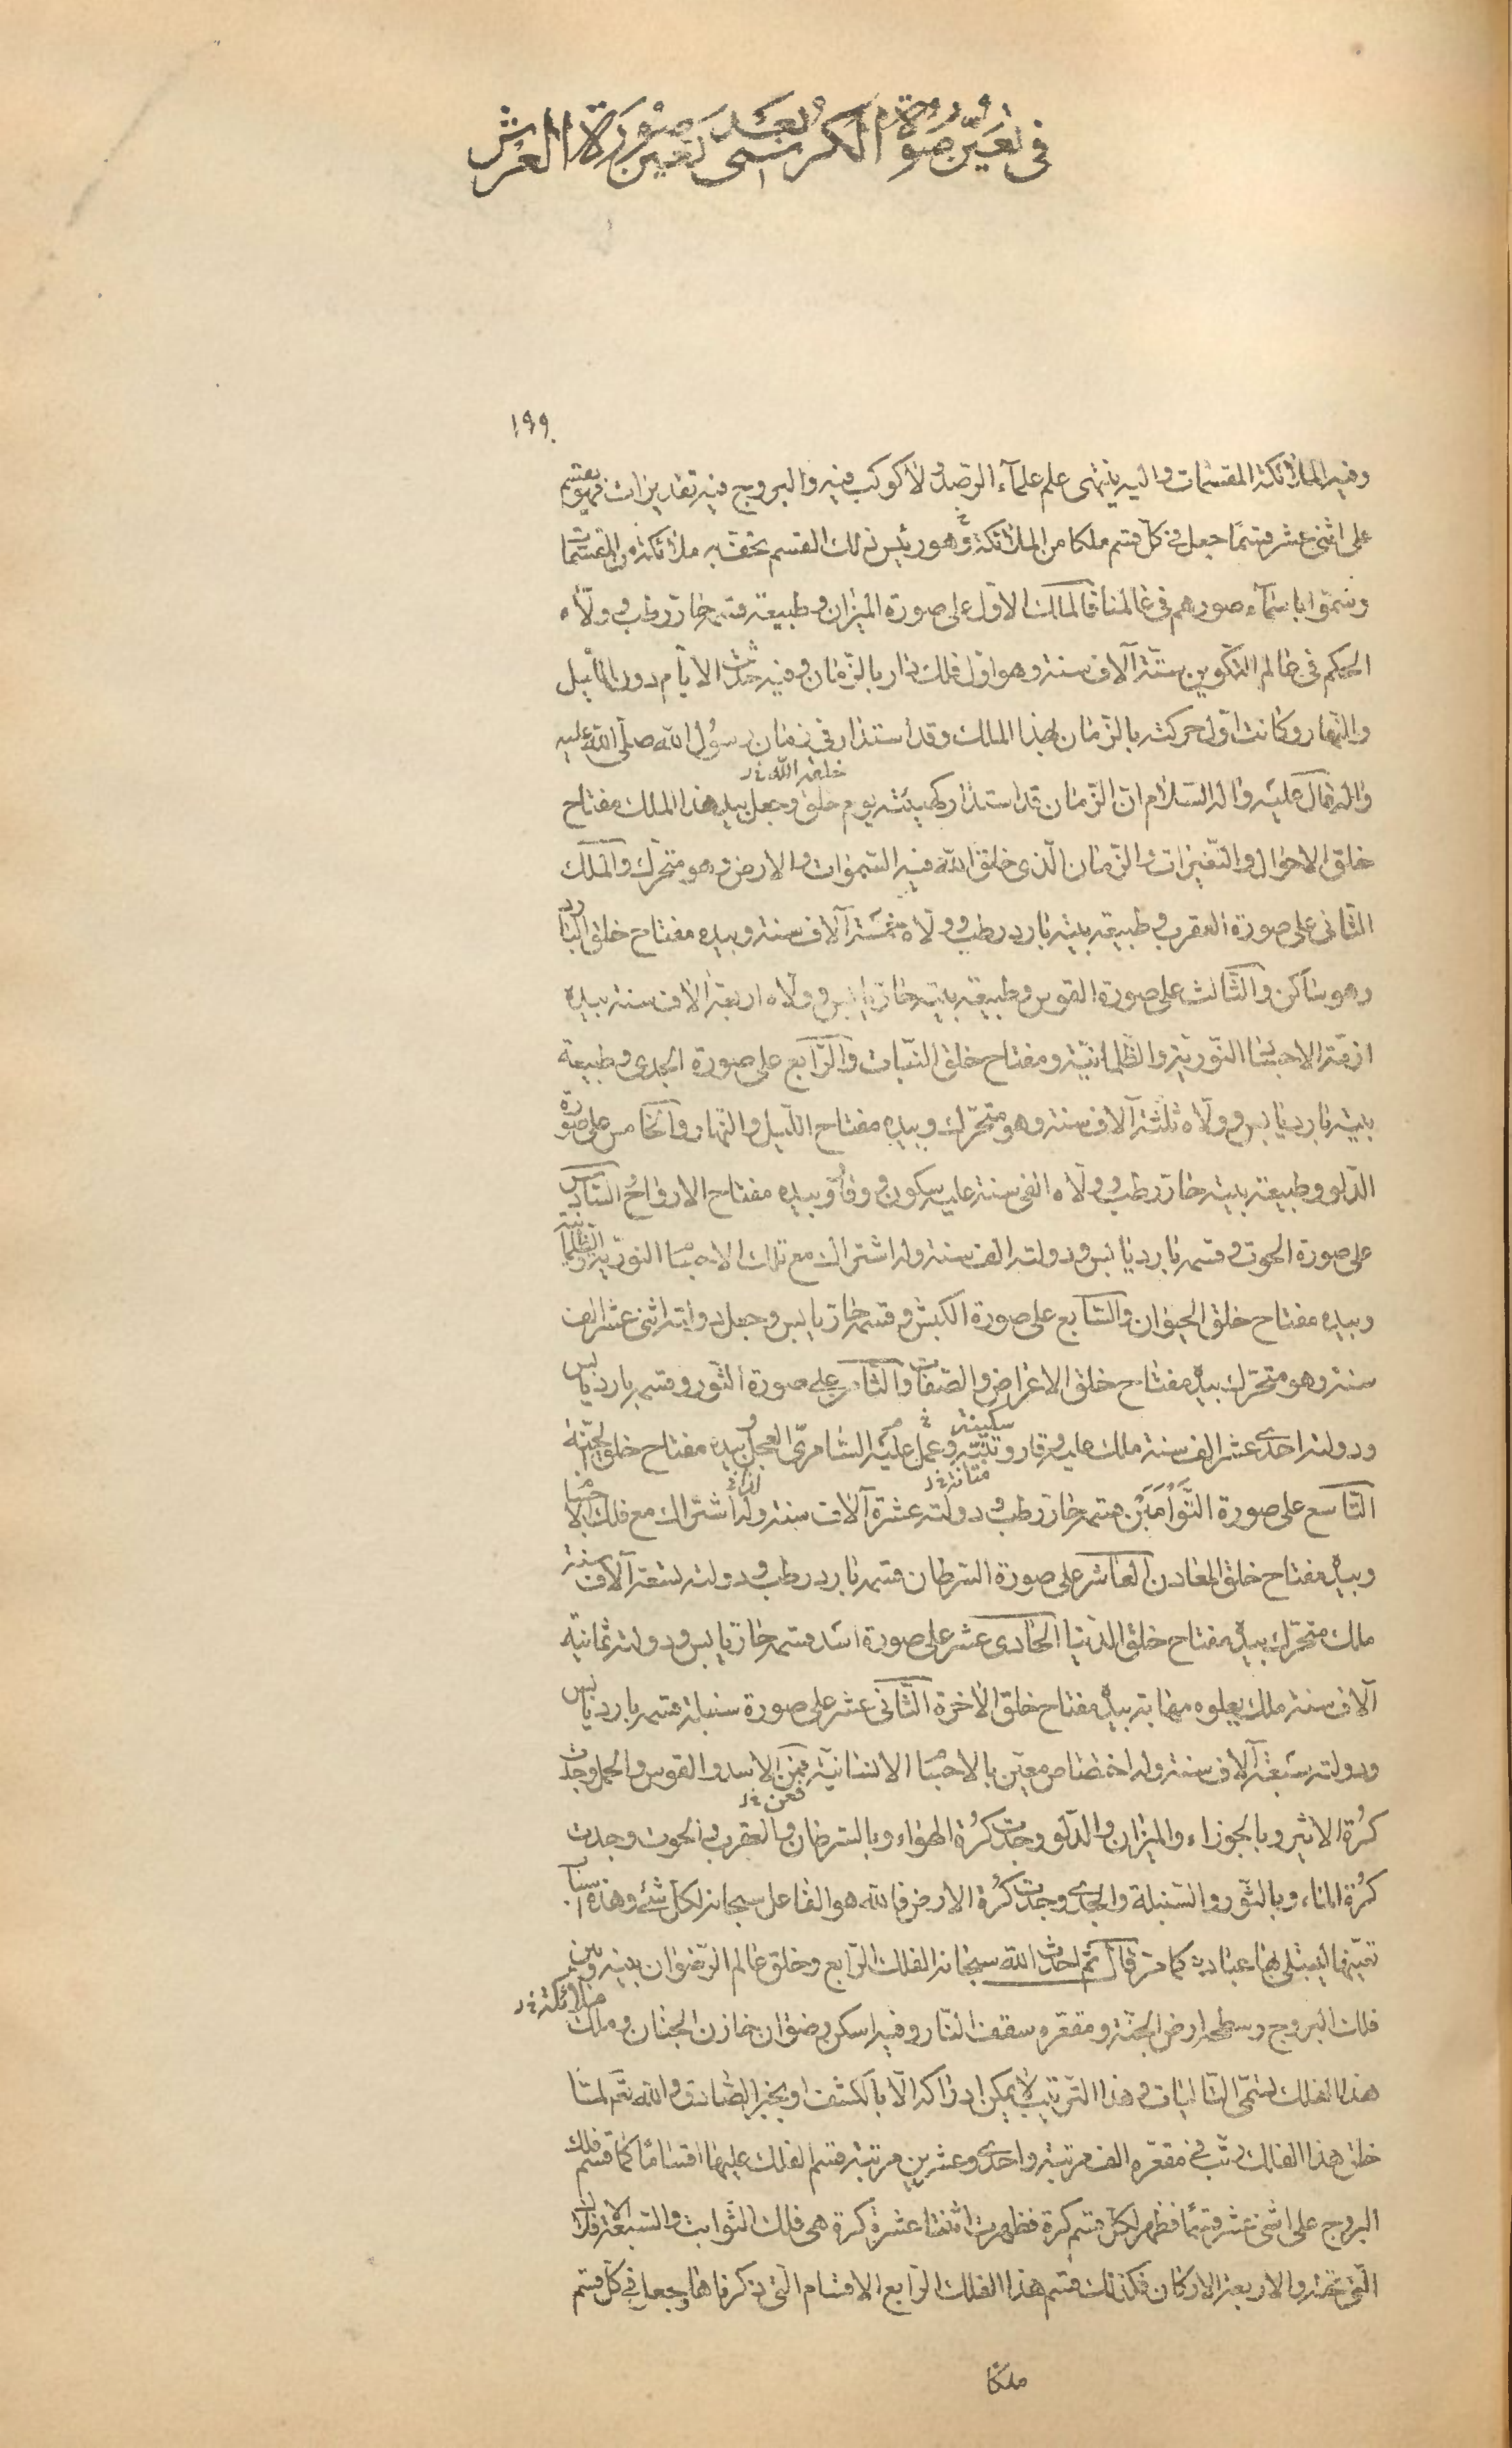 في تعيّن صورة الكرسي بعد تعين صورة العرش
١٩٩
وفيه الملائكة المقسمات واليه ينتهى علم علماء الرصد ولا كوكب فيه والبروج فيه تقديرات فهو يقسم
على اثنى عشر قسمًا جعل في كلّ قسم ملكا من الملائكة وهو رئيس ذلك القسم يحفّ به ملائكة من المقسمات
وسمّوا باسماء صورهم في عالمنا فالملك الاوّل على صورة الميزان وطبيعة قسمه حارّ رطب وولّاه
الحكم في عالم التكوين ستّة آلاف سنة وهو اوّل فلك دار بالزمان وفيه حدثت الايّام دون الليل
والنهار وكانت اوّل حركته بالزّمان لهذا الملك وقد استدار في زمان رسول الله صلّى الله عليه
وآله فقال عليه واله السّلام انّ الزّمان قد استدار كهيئته يوم خلق وجعل بيد هذا الملك مفتاح
خلقه الله خ‍ ر
خلق الاحوال والتّغيرات والزّمان الّذى خلق الله فيه السّموات والارض وهو متحرّك والملك
الثّانى على صورة العقرب وطبيعة بيته بارد رطب وولّاه خمسة آلاف سنة وبيده مفتاح خلق النّار
وهو ساكن والثّالث على صورة القوس وطبيعة بيته حارّ يابس وولّاه اربعة آلاف سنة بيده
ازمّة الاجسا النّوريّة والظّلمانيّة ومفتاح خلق النّبات والرّابع على صورة الجدى وطبيعة
بيته بارد يابس وولّاه ثلثة آلاف سنة وهو متحرّك وبيده مفتاح اللّيل والنّهار والخامس على صورة
الدّلو وطبيعة بيته حارّ رطب وولّاه الفى سنة عليه سكون ووقار وبيده مفتاح الارواح السّادس
على صورة الحوت وقسمه بارد يابس ودولته الف سنة وله اشتراك مع تلك الاجسا النوريّة والظّلمانيّة
وبيده مفتاح خلق الحيوان والسّابع على صورة الكبش وقسمه حارّ يابس وجعل دولته اثنى عشر الف
سنة وهو متحرّك بيده مفتاح خلق الاعراض والصّفات والثّامن على صورة الثّور وقسمه بارد يابس
ودولته احدى عشر الف سنة ملك عليه وقار وتثبّت وعمل عليه السّامرىّ العجل وبيده مفتاح خلق الجنّة
سكينة
متانة خ‍ ر
التّاسع على صورة التّوأمين قسمه حارّ رطب ودولته عشرة آلاف سنة وله اشتراك مع فلك الاجسا
وبيده مفتاح خلق المعادن العاشر على صورة السّرطان قسمه بارد رطب ودولته تسعة آلاف سنة
ملك متحرّك بيده مفتاح خلق الدّنيا الحادى عشر على صورة اسد قسمه حارّ يابس ودولته ثمانية
آلاف سنة ملك يعلوه مهابة بيده مفتاح خلق الآخرة الثّانى عشر على صورة سنبلة قسمه بارد يابس
ودولته سبعة آلاف سنة وله اختصاص معيّن بالاجسا الانسانيّة فمن الاسد والقوس والحمل وجدت
فعن خ‍ ر
كرة الاثير وبالجوزاء والميزان والدّلو وجدت كرة الهواء وبالسّرطان والعقرب والحوت وجدت
كرة الماء وبالثّور والسّنبلة والجدى وجدت كرة الارض فالله هو الفاعل سبحانه لكلّ شئ وهذه اسباب
نصبها ليبتلى بها عباده كما مرّ قال ثمّ احدث الله سبحانه الفلك الرّابع وخلق عالم الرّضوان بينه وبين
فلك البروج وسطحه ارض الجنّة ومقعّره سقف النّار وفيه اسكن رضوان خازن الجنان وملك
ملائكة خ‍ ر
هذا الفلك تسمّى التّاليات وهذا التّرتيب لا يمكن ادراكه الّا بالكشف او بخبر الصّادق والله تعم لمّا
خلق هذا الفلك رتّب في مقعّره الف مرتبة واحدى وعشرين مرتبة قسم الفلك عليها اقسامًا كما قسم فلك
البروج على اثنى عشر قسمًا فظهر لكلّ قسم كرة فظهرت اثنتا عشرة كرة هى فلك الثّوابت والسّبعة الافلاك
الّتى تحته والاربعة الاركان فكذلك قسم هذا الفلك الرّابع الاقسام الّتى ذكرناها وجعل في كلّ قسم
ملكا